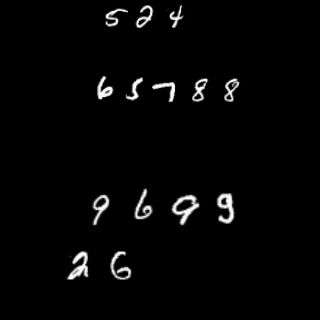 5 2 4
6 5 7 8 8
9 6 9 9
2 6